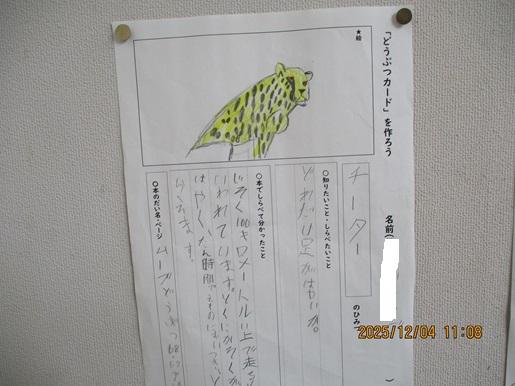 「どうぶつカード」を作ろう
名前(
)
★絵
チーター
のひみつ
○知りたいこと・しらべたいこと
どれだけ足がはやいか。
○本でしらべて分かったこと
じそく100キロメートル以上で走る
いわれています。とくにかそくが
はやく、たん時間で
けます。
○本のだい名・ページ
ムーブどうぶつ
2025/12/04 11:08